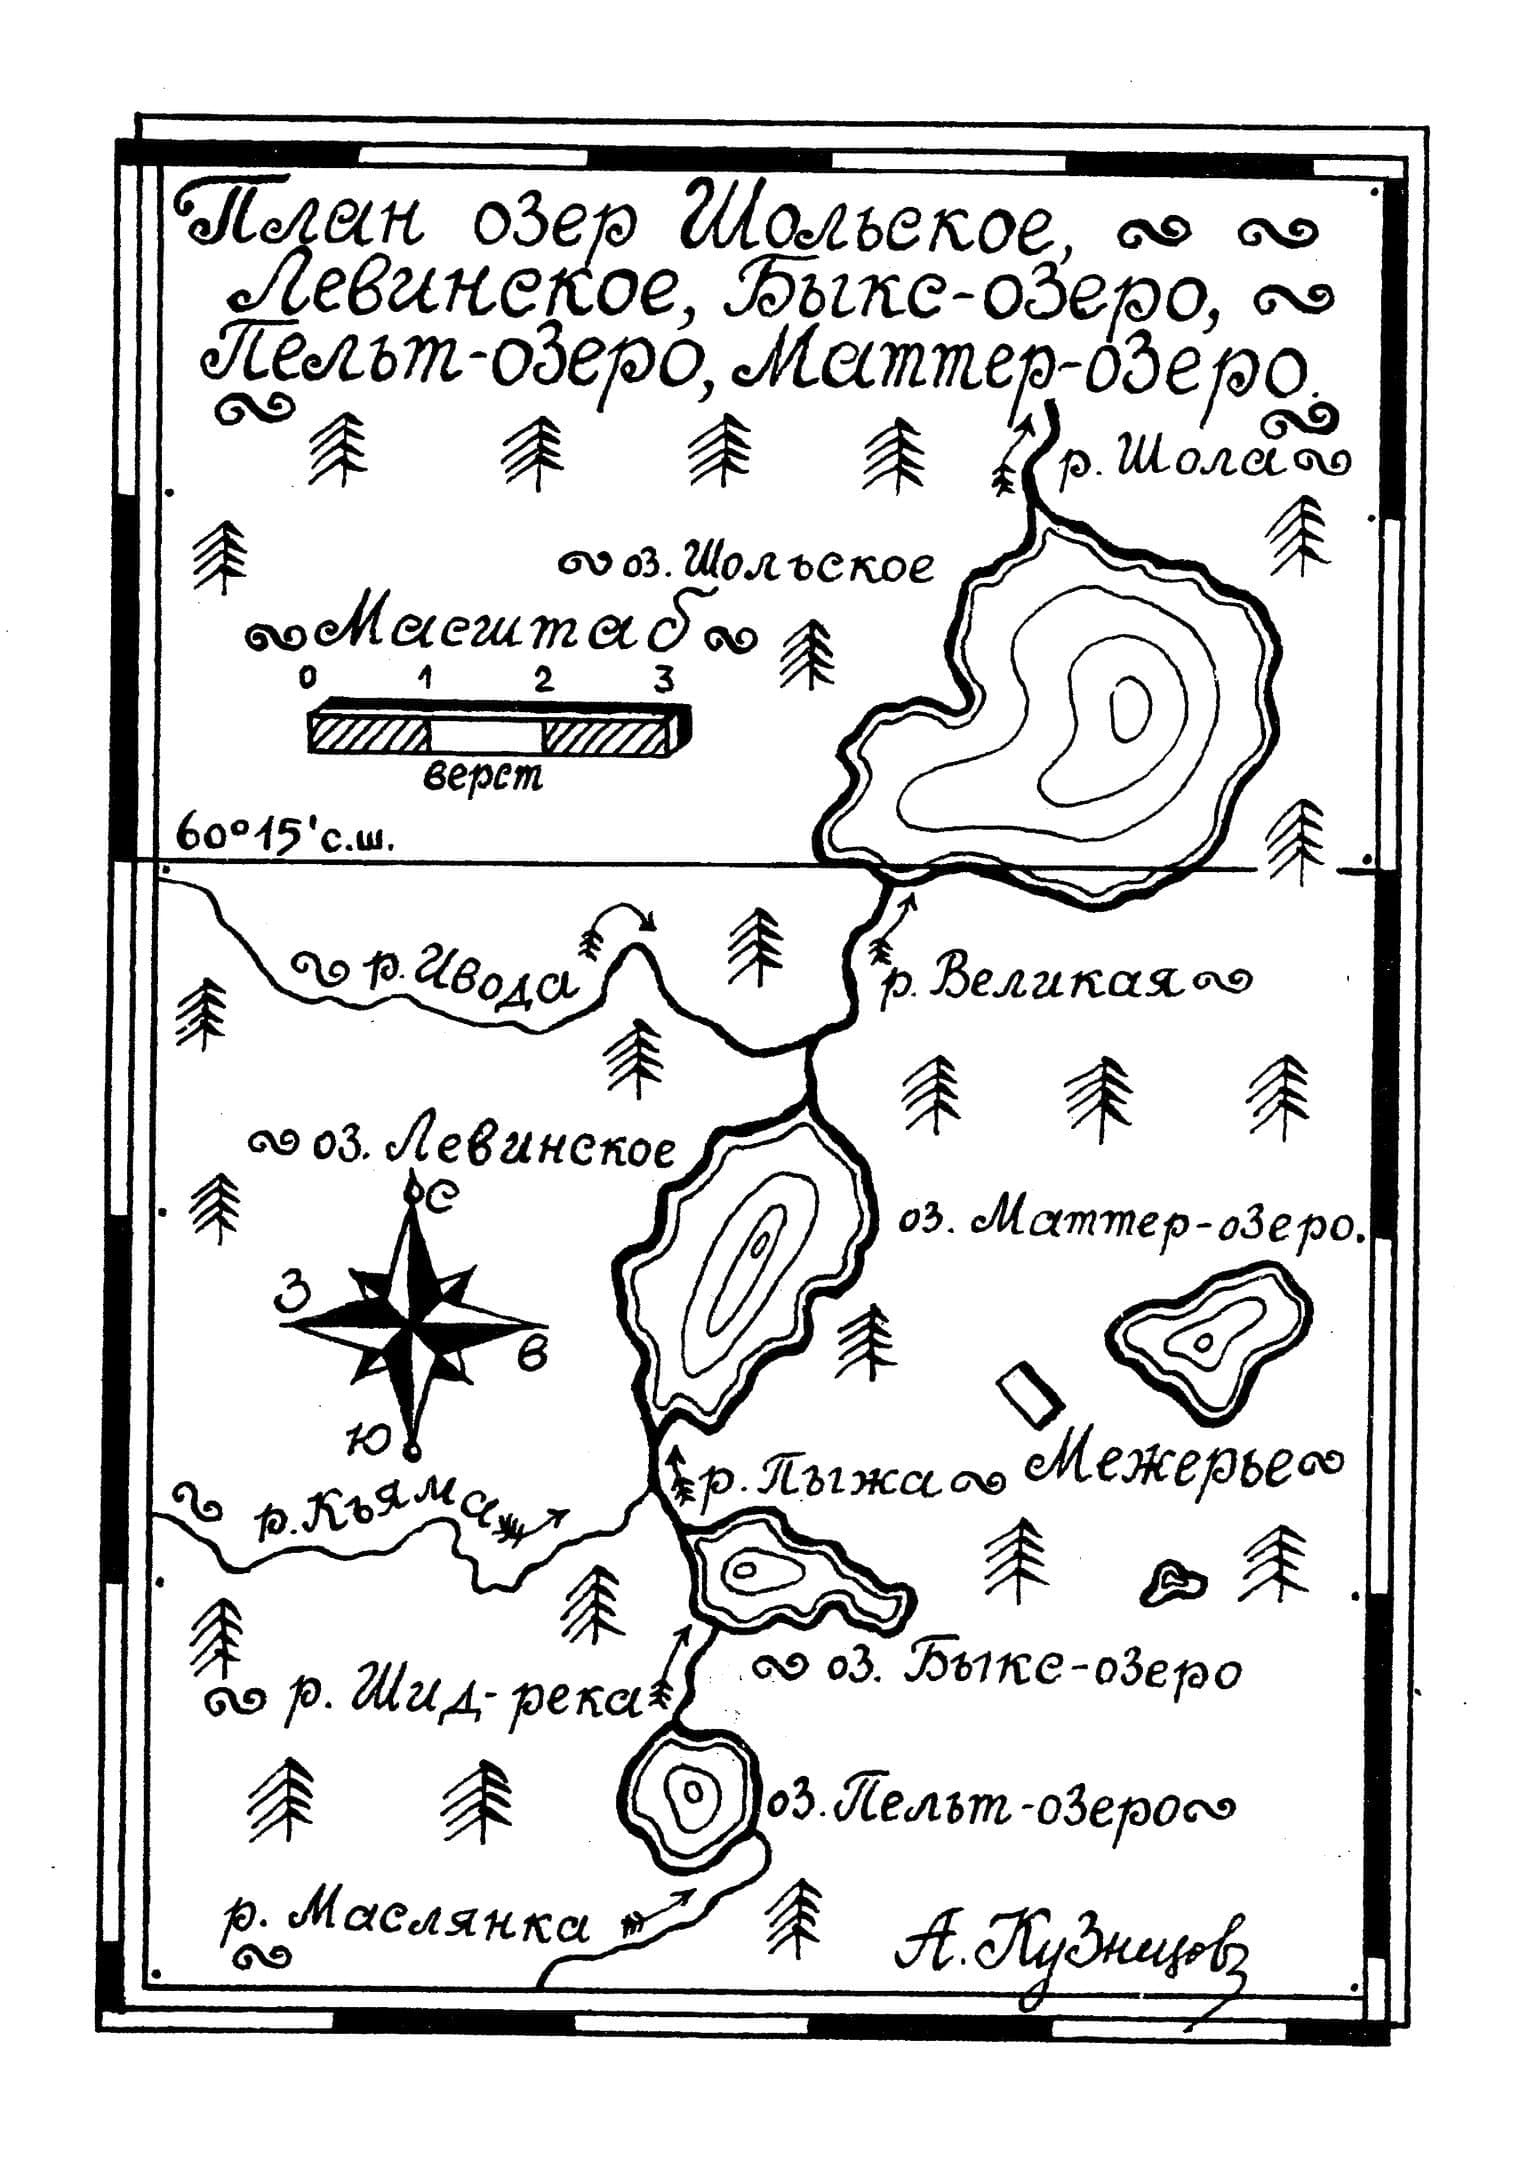 План озер Шольское,
Левинское, Быкс-озеро,
Пельт-озеро, Маттер-озеро.
р. Шола
оз. Шольское
Масштаб
0 1 2 3
верст
60°15'с.ш.
р. Ивода
р. Великая
оз. Левинское
С
оз. Маттер-озеро.
З
В
Ю
Межерье
р. Пыжа
р. Кьяма
оз. Быкс-озеро
р. Шид-река
оз. Пельт-озеро
р. Маслянка
А. Кузнецов